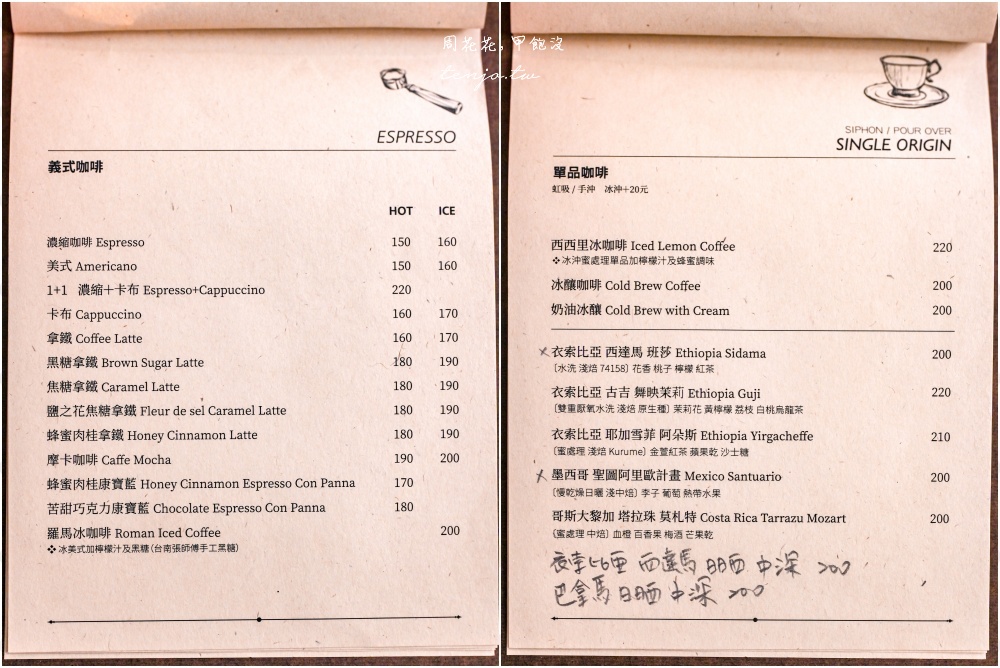 周花花，甲飽沒
tenjo.tw
ESPRESSO
義式咖啡
HOT ICE
濃縮咖啡 Espresso 150 160
美式 Americano 150 160
1+1 濃縮＋卡布 Espresso+Cappuccino 220
卡布 Cappuccino 160 170
拿鐵 Coffee Latte 160 170
黑糖拿鐵 Brown Sugar Latte 180 190
焦糖拿鐵 Caramel Latte 180 190
鹽之花焦糖拿鐵 Fleur de sel Caramel Latte 180 190
蜂蜜肉桂拿鐵 Honey Cinnamon Latte 180 190
摩卡咖啡 Caffe Mocha 190 200
蜂蜜肉桂康寶藍 Honey Cinnamon Espresso Con Panna 170
苦甜巧克力康寶藍 Chocolate Espresso Con Panna 180
羅馬冰咖啡 Roman Iced Coffee 200
❖冰美式加檸檬汁及黑糖(台南張師傅手工黑糖)
SIPHON / POUR OVER
SINGLE ORIGIN
單品咖啡
虹吸 / 手沖 冰沖+20元
西西里冰咖啡 Iced Lemon Coffee 220
❖冰沖蜜處理單品加檸檬汁及蜂蜜調味
冰釀咖啡 Cold Brew Coffee 200
奶油冰釀 Cold Brew with Cream 200
衣索比亞 西達馬 班莎 Ethiopia Sidama 200
〔水洗 淺焙 74158〕花香 桃子 檸檬 紅茶
衣索比亞 古吉 舞映茉莉 Ethiopia Guji 220
〔雙重厭氧水洗 淺焙 原生種〕茉莉花 黃檸檬 荔枝 白桃烏龍茶
衣索比亞 耶加雪菲 阿朵斯 Ethiopia Yirgacheffe 210
〔蜜處理 淺焙 Kurume〕金萱紅茶 蘋果乾 沙士糖
墨西哥 聖圖阿里歐計畫 Mexico Santuario 200
〔慢乾燥日曬 淺中焙〕李子 葡萄 熱帶水果
哥斯大黎加 塔拉珠 莫札特 Costa Rica Tarrazu Mozart 200
〔蜜處理 中焙〕血橙 百香果 梅酒 芒果乾
衣索比亞 西達馬 日晒 中深 200
巴拿馬 日晒 中深 200